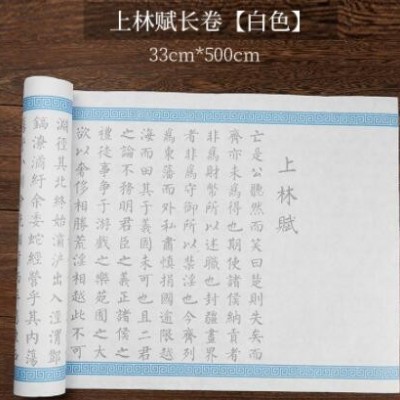 上林赋长卷【白色】
33cm*500cm
上林賦
亡是公聽然而笑曰楚則失矣而
齊亦未爲得也使諸侯納貢者
非爲財幣所以述職也封疆畫界
者非爲守御所以禁淫也今齊列
爲東藩而外私肅慎捐國逾限越
海而田其于義固未可也且二君
之論不務明君臣之義正諸侯之
禮徒事爭于游戲之樂苑囿之大
欲以奢侈相勝荒淫相越此不可
淵徑其北終始灞滻出入涇渭酆
鎬潦潏紆余委蛇經營乎其内蕩